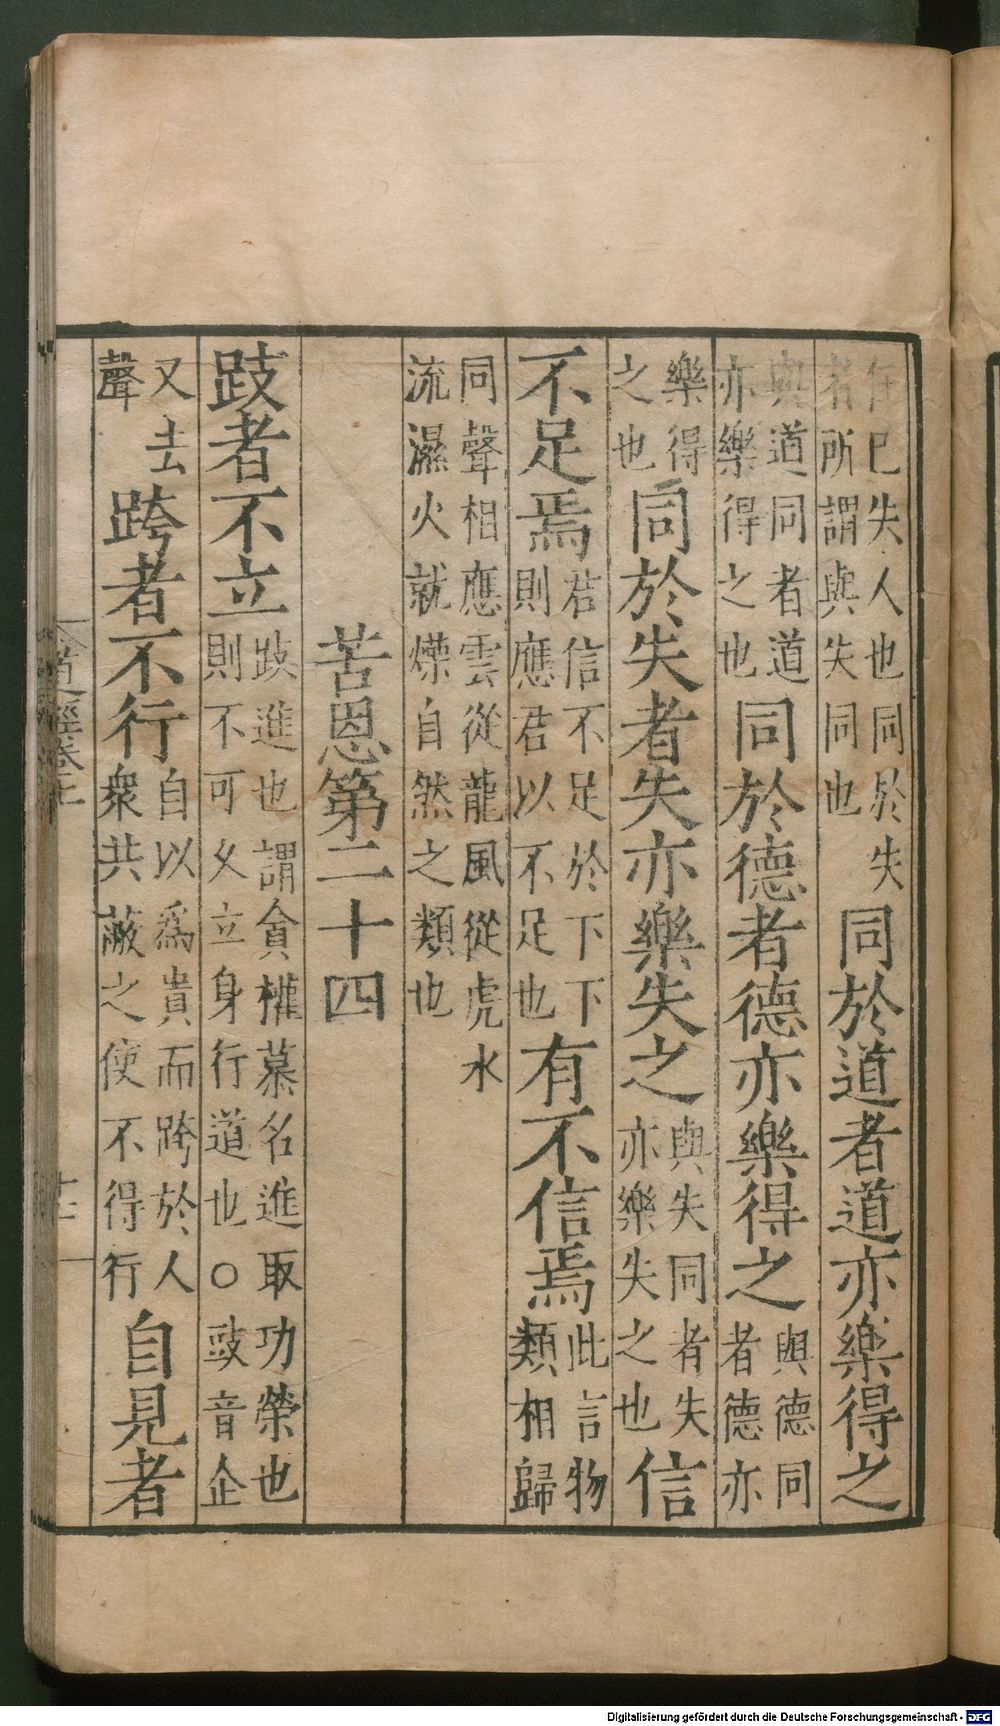 任已失人也同於失者所謂與失同也同於道者道亦樂得之
與道同者道亦樂得之也同於德者德亦樂得之與德同者德亦
樂得之也同於失者失亦樂失之與失同者失亦樂失之也信
不足焉君信不足於下下則應君以不足也有不信焉此言物類相歸
同聲相應雲從龍風從虎水流濕火就燥自然之類也
苦恩第二十四
跂者不立跂進也謂貪權慕名進取功榮也則不可久立身行道也○跂音企
又去聲跨者不行自以爲貴而跨於人衆共蔽之使不得行自見者
道經卷上
Digitalisierung gefördert durch die Deutsche Forschungsgemeinschaft - DFG